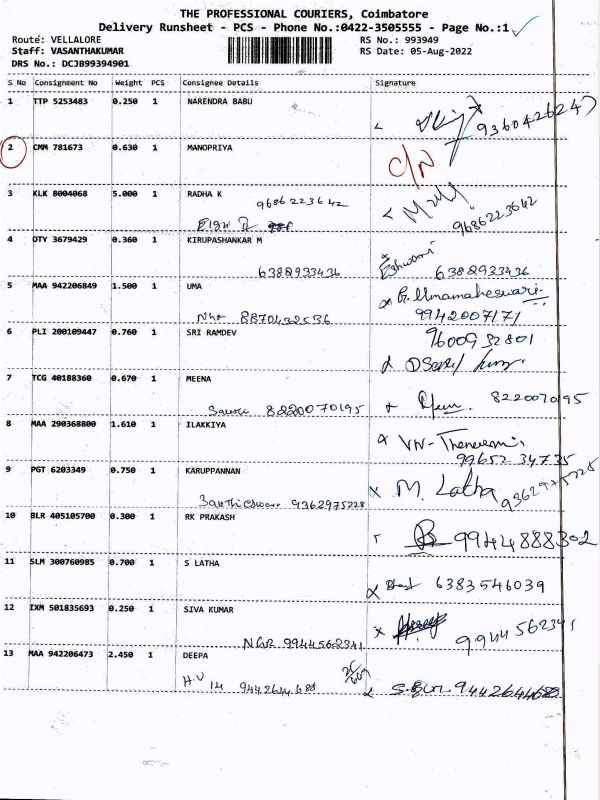 THE PROFESSIONAL COURIERS, Coimbatore
Delivery Runsheet - PCS - Phone No.:0422-3505555 - Page No.:1
Route: VELLALORE
RS No.: 993949
Staff: VASANTHAKUMAR
RS Date: 05-Aug-2022
DRS No.: DCJB99394901
S No Consignment No Weight PCS Consignee Details Signature
1 TTP 5253483 0.250 1 NARENDRA BABU
9360426247
2 CMM 781673 0.630 1 MANOPRIYA
C/N
3 KLK 8004068 5.000 1 RADHA K
9686223642
9686223642
4 OTY 3679429 0.360 1 KIRUPASHANKAR M
Eshwari
6382933436 6382933436
5 MAA 942206849 1.500 1 UMA
G. Umamaheswari
8870432536 9942007171
6 PLI 200109447 0.760 1 SRI RAMDEV
9600932801
7 TCG 40188360 0.670 1 MEENA
8220070195 8220070195
8 MAA 290368800 1.610 1 ILAKKIYA
99652 34735
9 PGT 6203349 0.750 1 KARUPPANNAN
M. Latha 9362975228
9362975228
10 BLR 405105700 0.300 1 RK PRAKASH
9944888302
11 SLM 300760985 0.700 1 S LATHA
6383546039
12 IXM 501835693 0.250 1 SIVA KUMAR
NGR 9944562341 9944562341
13 MAA 942206473 2.450 1 DEEPA
H.V 14 9442644688 9442644688